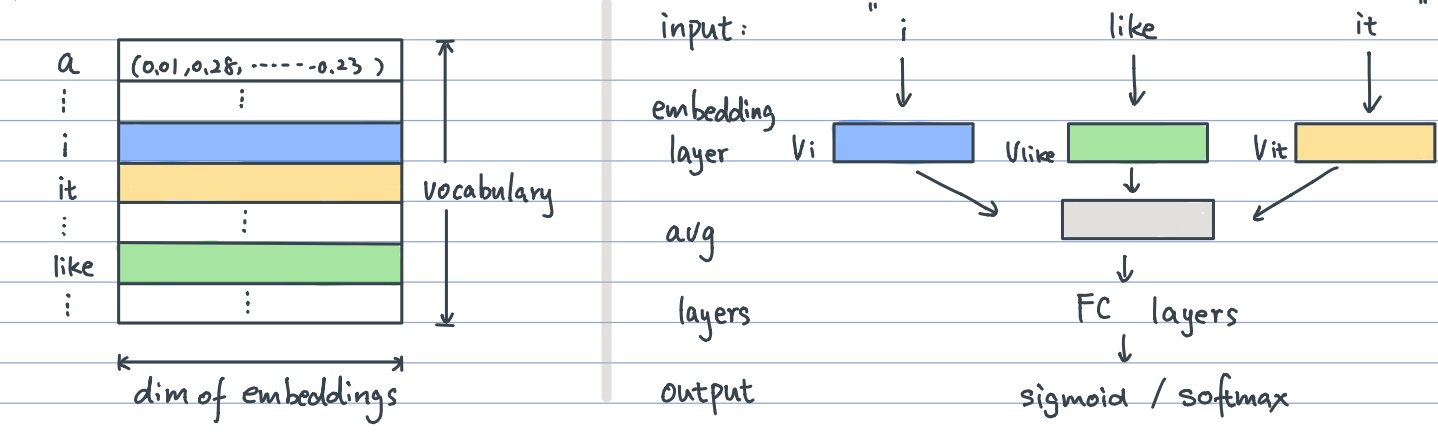 a (0.01, 0.28, ······-0.23 )
⋮ ⋮
i
it
⋮ ⋮
like
⋮ ⋮
vocabulary
dim of embeddings
input: " i like it "
embedding
layer Vi Vlike Vit
avg
layers FC layers
output sigmoid / softmax